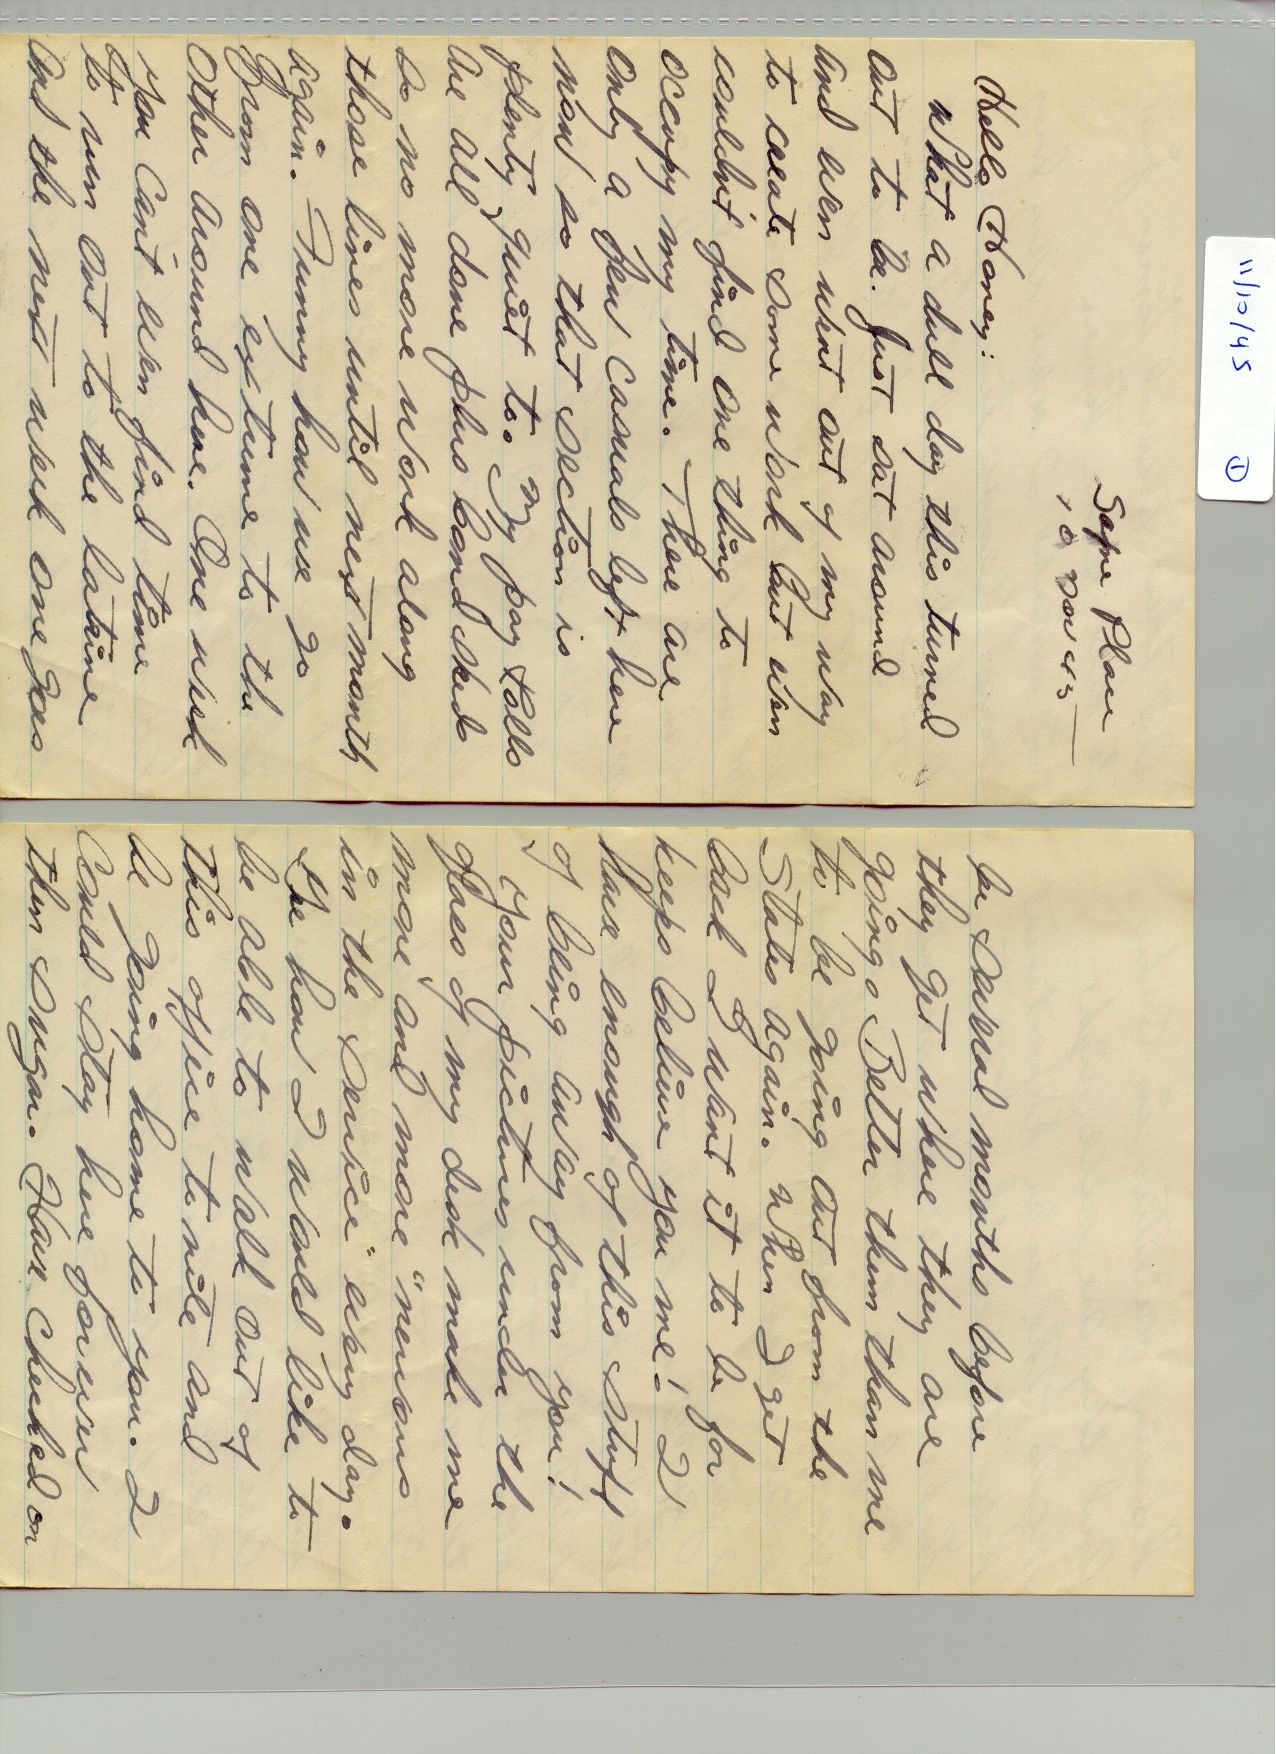 11/10/45 ①
Same Place
10 Nov 45
Hello Honey:
What a dull day this turned
out to be. Just sat around
and even went out of my way
to create some work but even
couldn't find one thing to
occupy my time. There are
only a few casuals left here
now so that section is
plenty quiet to. My pay rolls
are all done plus bond scheds
so no more work along
those lines until next month
again. Funny how we go
from one extreme to the
other around here. One week
you can't even find time
to run out to the latrine
and the next week one goes
be several months before
they get where they are
going. Better them than me
to be going out from the
States again. When I get
back I want it to be for
keeps believe you me! I
have enough of this stuff
of being away from you!
Your pictures under the
glass of my desk make me
more and more "nervous
in the service" every day.
Gee how I would like to
be able to walk out of
this office to nite and
be going home to you. I
could stay here forever
then Sugar. Have checked on